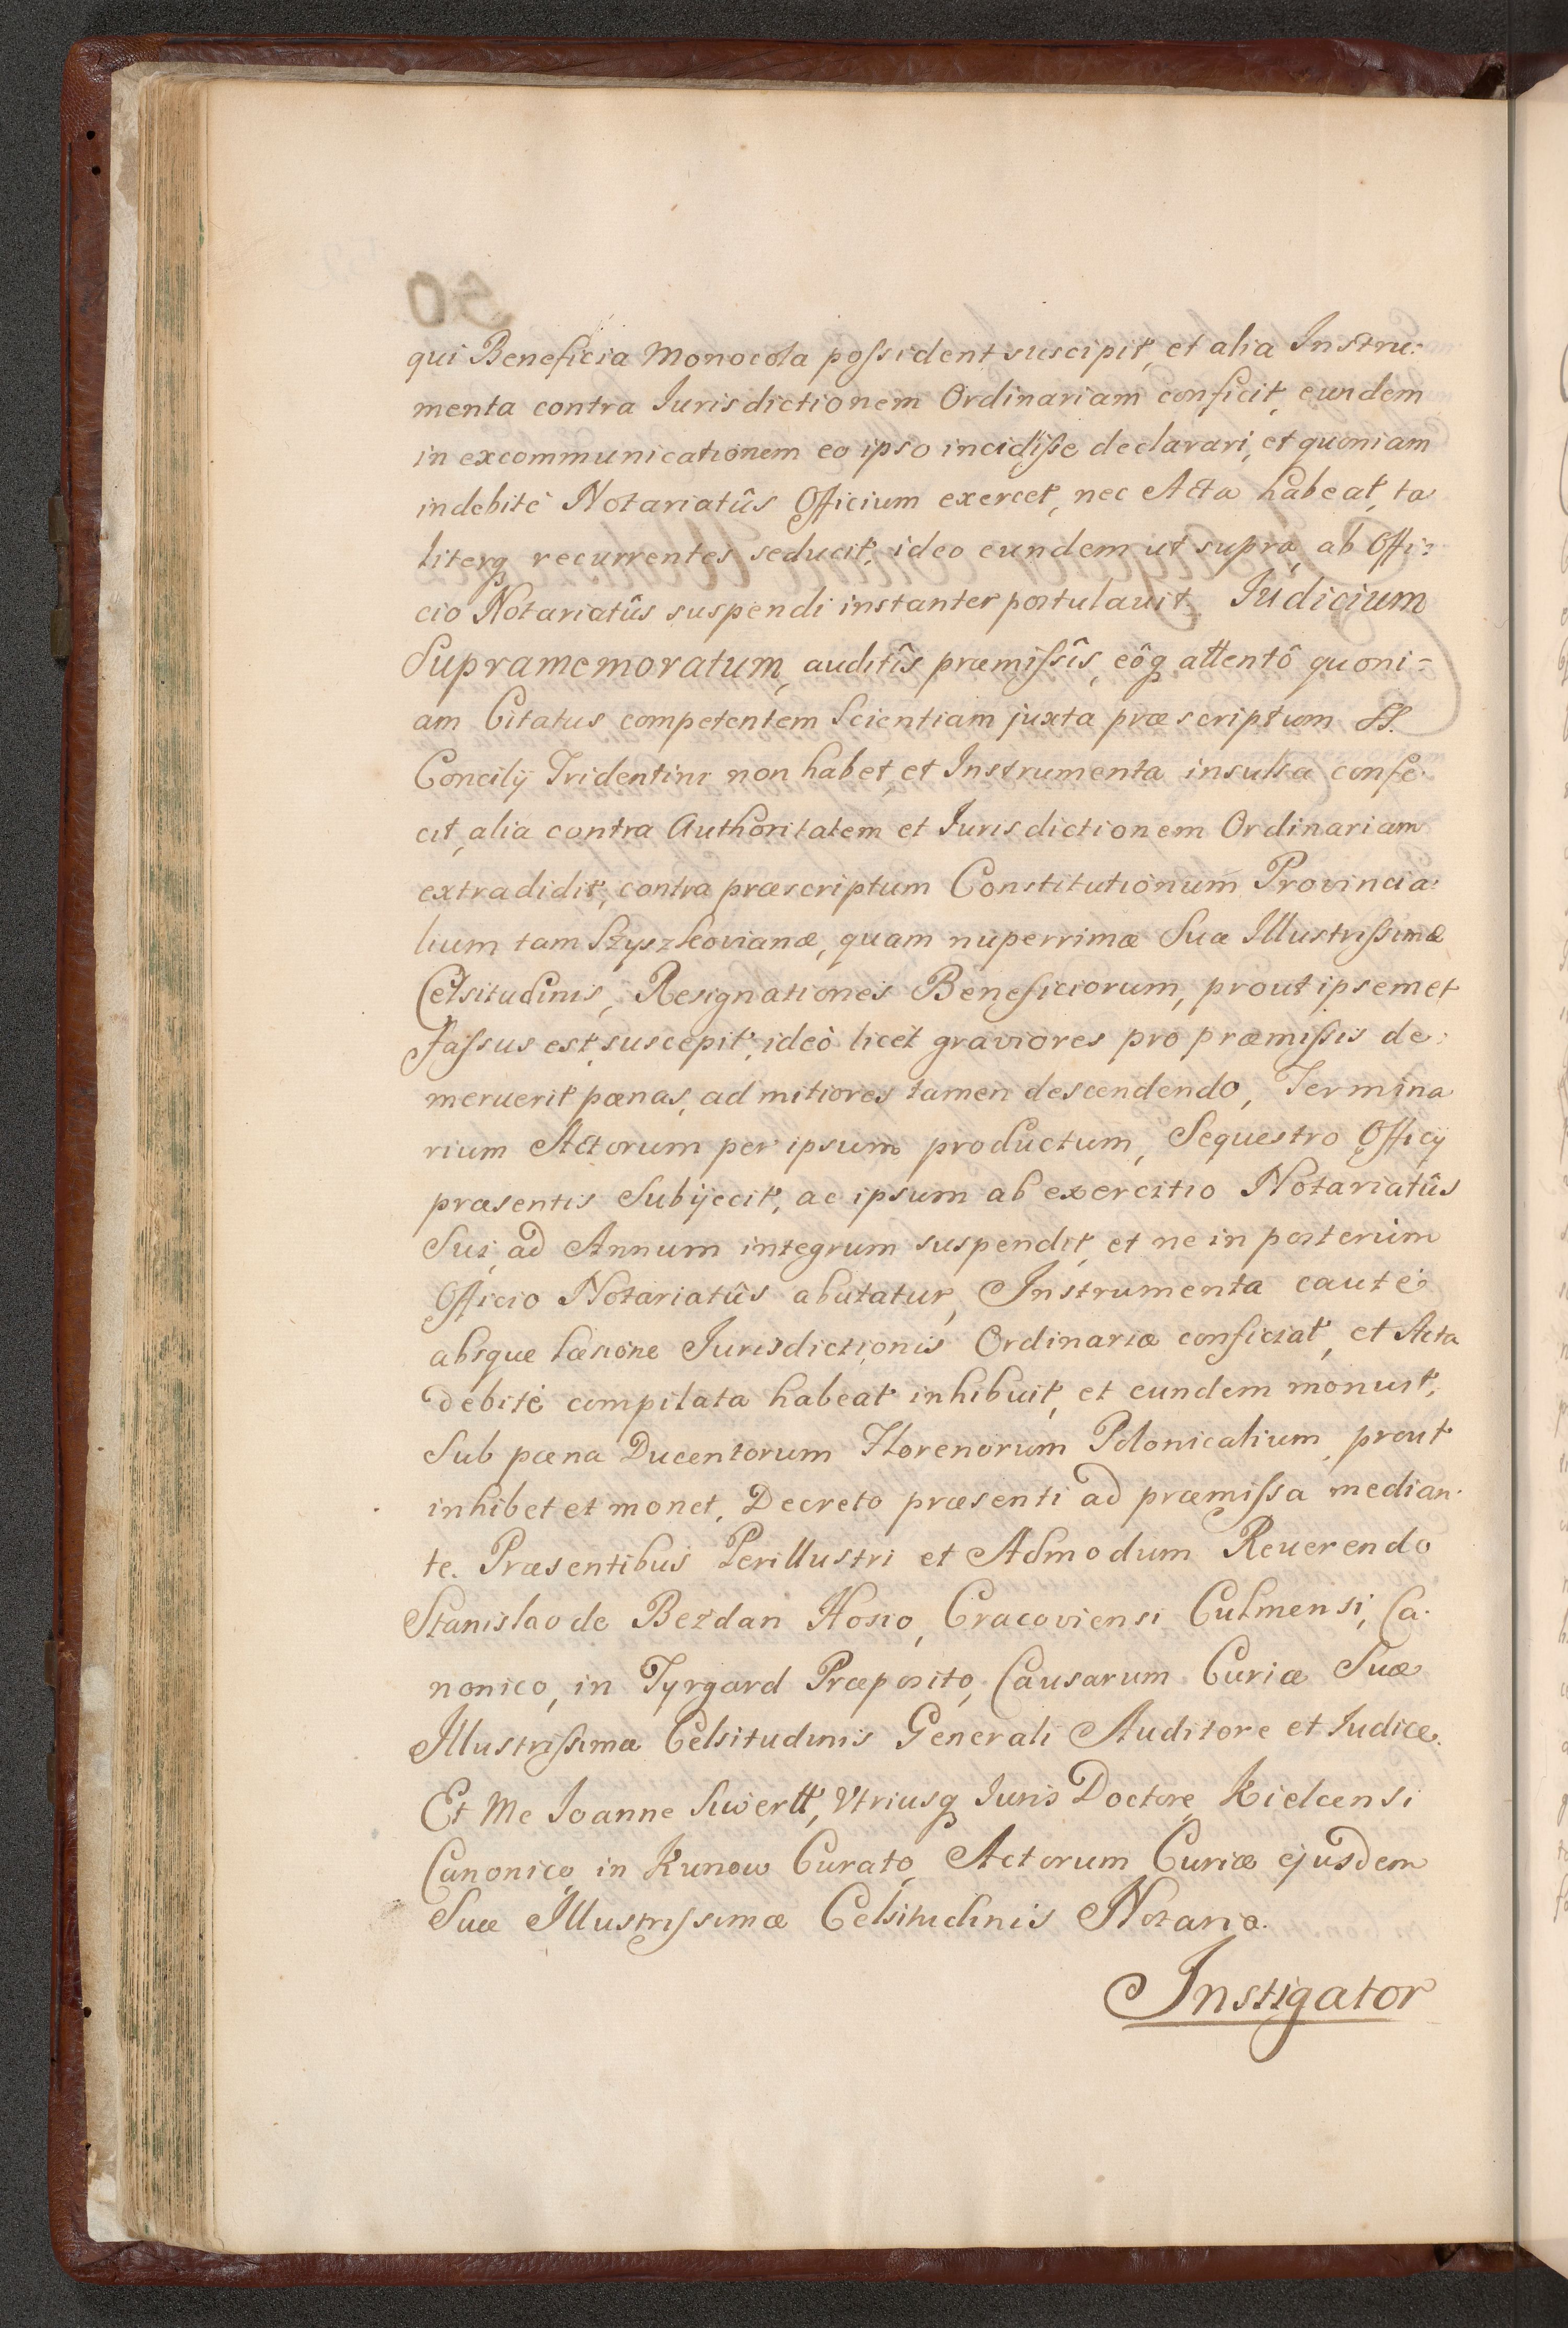 qui Beneficia Monocola possident suscipit, et alia Instru:
menta contra Iurisdictionem Ordinariam conficit, eundem
in excommunicationem eo ipso incidisse declarari, et quoniam
indebitè Notariatûs Officium exercet, nec Acta habeat, ta
literq recurrentes seducit, ideo eundem ut supra, ab Offi:
cio Notariatûs suspendi instanter postulavit. Iudicium
Supramemoratum, auditîs præmissîs, eôq attentô quoni=
am Citatus competentem Scientiam juxta præscriptum SS.
Concilÿ Tridentini non habet, et Instrumenta insulsa confe
cit, alia contra Authoritatem et Iurisdictionem Ordinariam
extradidit, contra præscriptum Constitutionum Provincia:
lium tam Szyszkovianæ, quam nuperrimæ Suæ Illustrissimæ
Celsitudinis, Resignationes Beneficiorum, prout ipsemet
fassus est, suscepit, ideò licet graviores pro præmissis de:
meruerit pœnas, ad mitiores tamen descendendo, Termina
rium Actorum per ipsum productum, Sequestro Officÿ
præsentis Subÿecit, ac ipsum ab exercitio Notariatûs
Sui, ad Annum integrum suspendit, et ne in posterùm
Officio Notariatûs abutatur, Instrumenta cautè
absque læsione Jurisdictionis Ordinariæ conficiat, et Acta
debitè compilata habeat inhibuit, et eundem monuit,
Sub pœna Ducentorum Florenorum Polonicalium, prout
inhibet et monet, Decreto præsenti ad præmissa median.
te. Præsentibus Perillustri et Admodum Reverendo
Stanislao de Bezdan Hosio, Cracoviensi Culmensi, Ca.
nonico, in Tyrgard Præposito, Causarum Curiæ Suæ
Illustrissimæ Celsitudinis Generali Auditore et Iudice.
Et Me Joanne Suwertt, Utriusq Iuris Doctore, Kielcensi
Canonico, in Kunow Curato, Actorum Curiæ ejusdem
Suæ Illustrissimæ Celsitudinis Notario.
Instigator